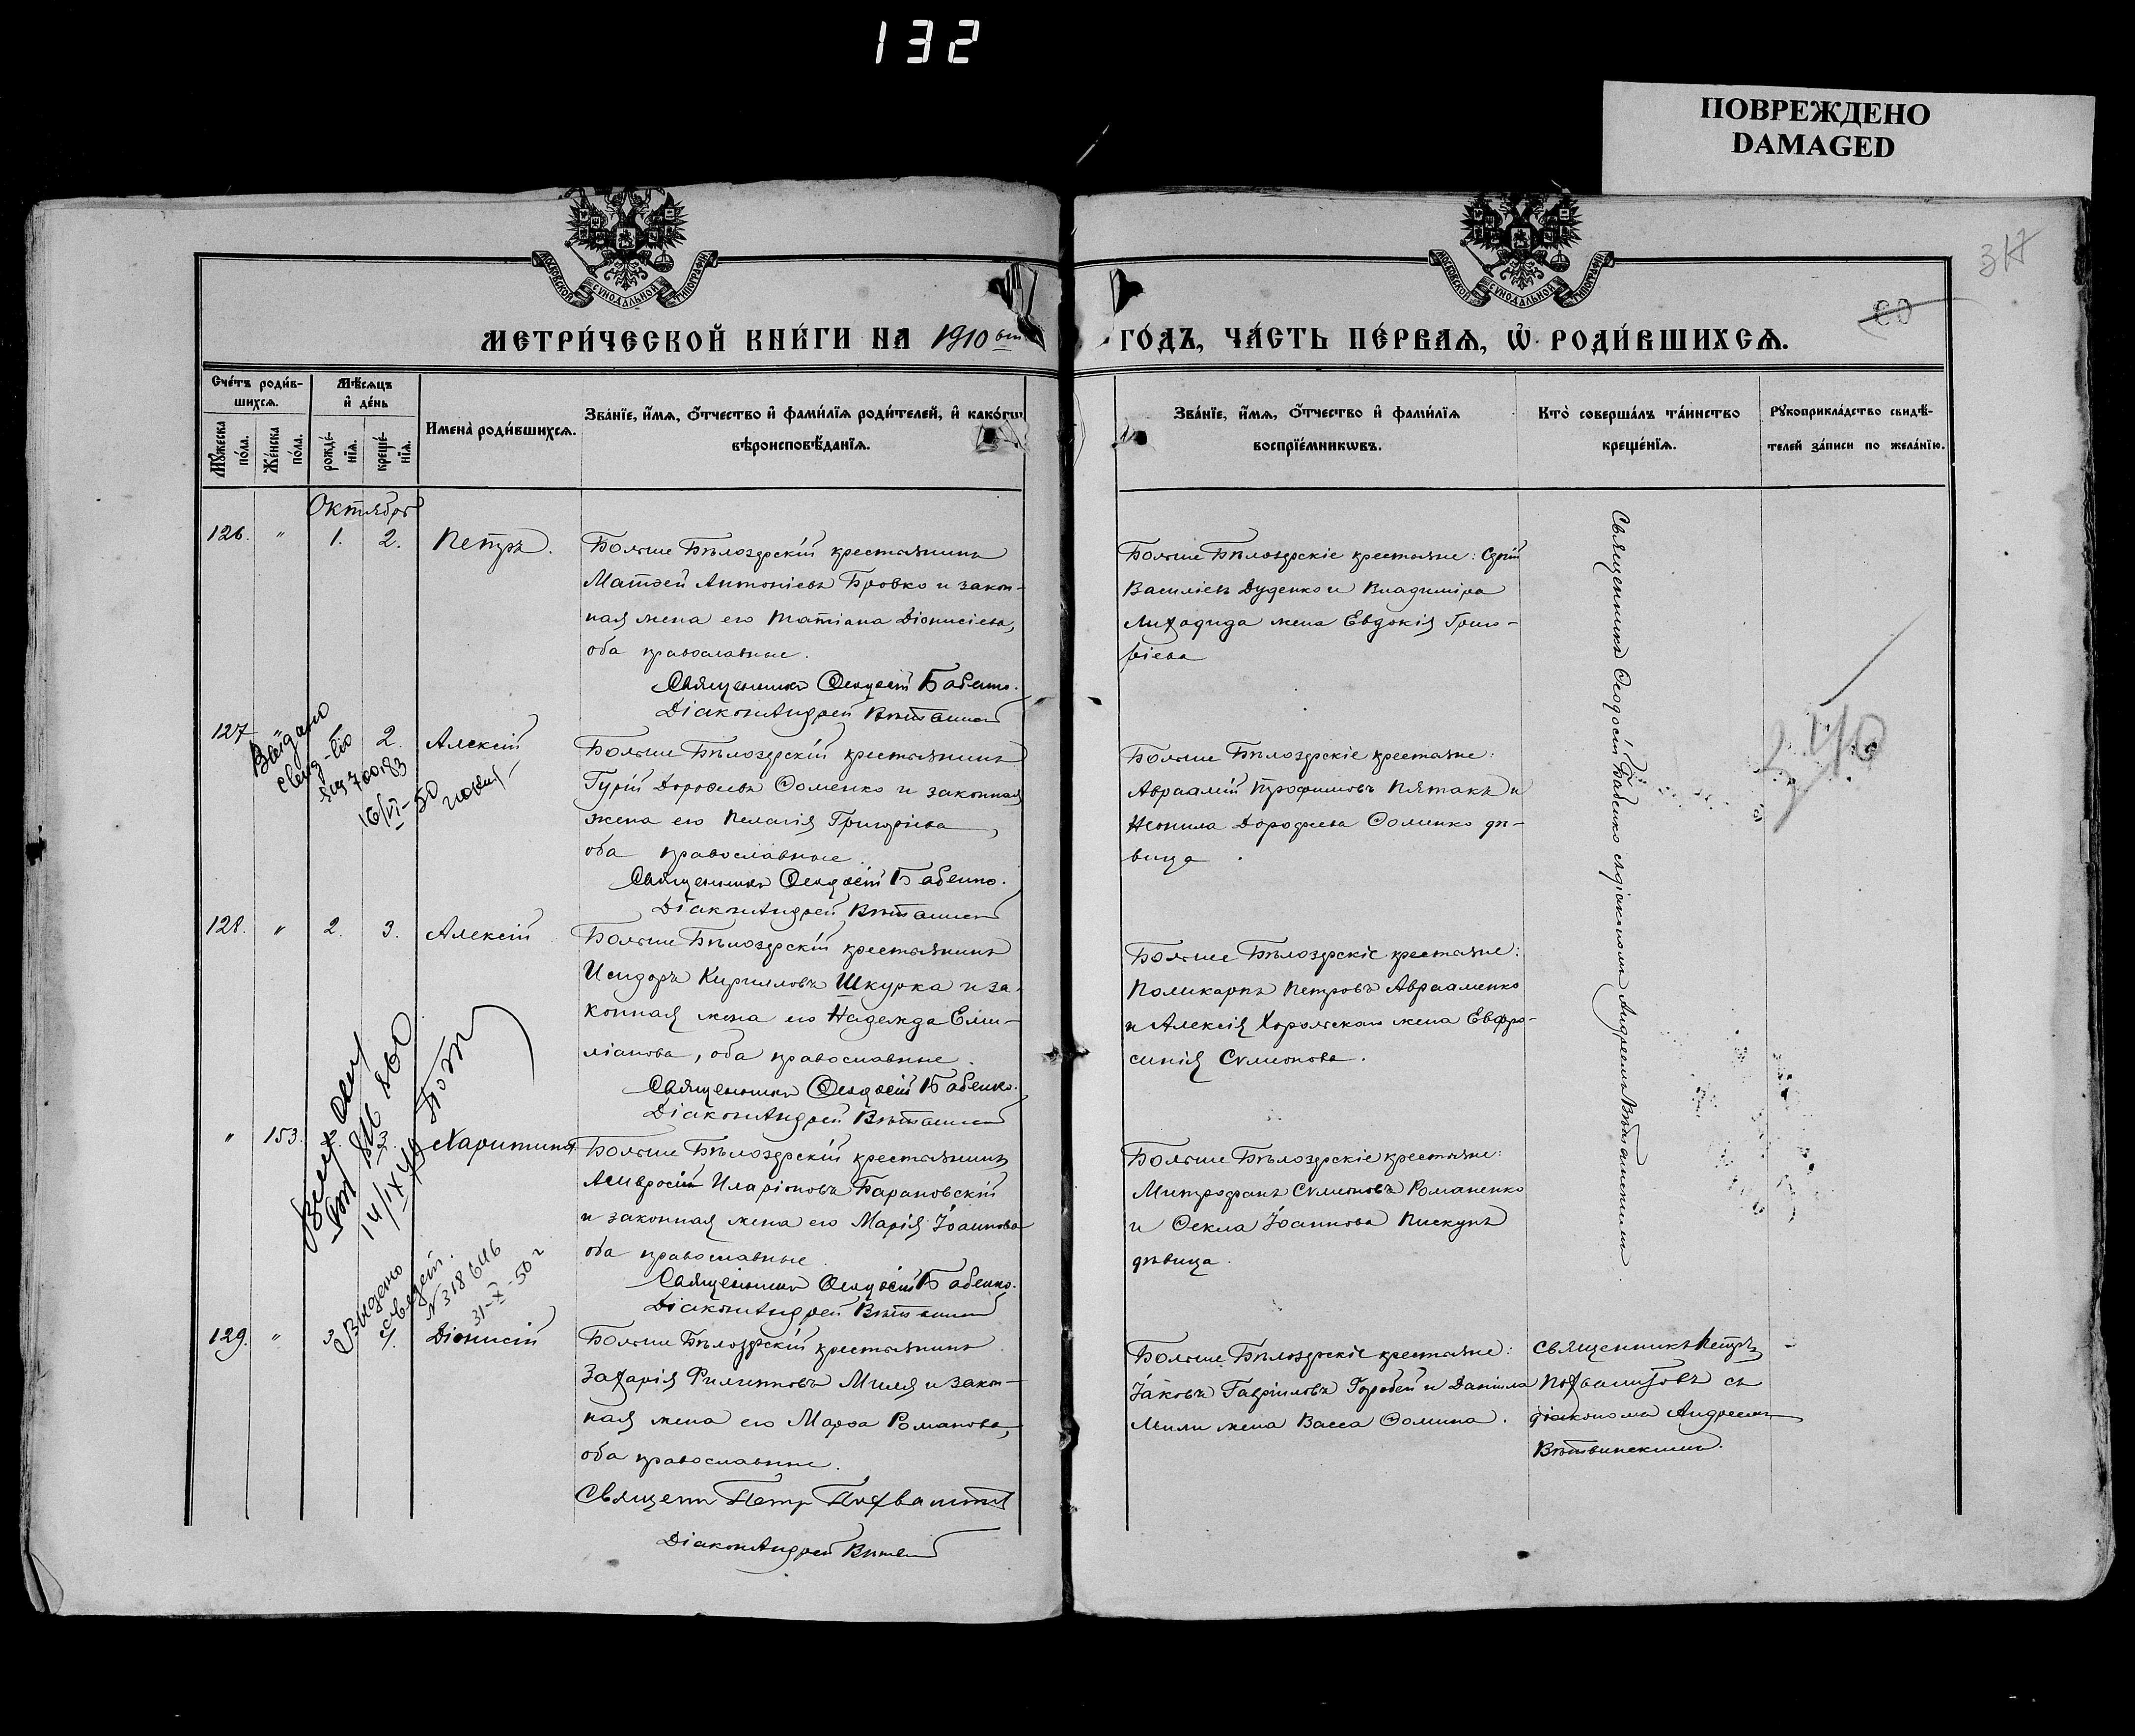 132
ПОВРЕЖДЕНО
DAMAGED
МОСКОВСКОЙ СѴНОДАЛЬНОЙ ТИПОГРАФІИ
МОСКОВСКОЙ СѴНОДАЛЬНОЙ ТИПОГРАФІИ
317
60
МЕТРИ́ЧЕСКОЙ КНИ́ГИ НА 1910
ГО́ДЪ, ЧА́СТЬ ПЕ́РВАѦ, Ѡ РОДИ́ВШИХСѦ.
Сче́тъ роди́в-
шихсѧ.
Мꙋ́жеска
по́ла.
Же́нска
по́ла.
Мѣ́сѧцъ
и҆ де́нь
рожде́-
нїѧ.
креще́-
нїѧ.
Имена̀ роди́вшихсѧ.
Зва́нїе, и҆́мѧ, ѻ҆́тчество и҆ фами́лїѧ роди́телей, и҆ како́гѡ
вѣроисповѣ́данїѧ.
Зва́нїе, и҆́мѧ, ѻ҆́тчество и҆ фами́лїѧ
воспрїе́мникѡвъ.
Кто̀ соверша́лъ та́инство
креще́нїѧ.
Рꙋкоприкла́дство свидѣ́-
телей за́писи по жела́нїю.
Октябрь
126. " 1. 2. Петръ.
Больше Бѣлозерскій крестьянинъ
Матѳей Антоніевъ Бровко и закон-
ная жена его Татіана Діонисіева,
оба православные.
Священникъ Ѳеодосій Бабенко.
Діаконъ Андрей
Больше Бѣлозерскіе крестьяне:
Василіевъ Дуденко и Владиміра
Лиходида жена Евдокія Григо-
ріева
Священникъ Ѳеодосій Бабенко съ діакономъ Андреемъ
127 " 2. Алексій
Выдано
свид-во
700183
16/VI-50
Больше Бѣлозерскій крестьянинъ
Гурій Дороѳеевъ Ѳоменко и законная
жена его Пелагія Григоріева,
оба православные.
Священникъ Ѳеодосій Бабенко.
Діаконъ Андрей
Больше Бѣлозерскіе крестьяне:
Авраамій Трофимовъ Пятакъ и
Неонила Дороѳеева Ѳоменко дѣ-
вица.
128. " 2. 3. Алексій
Больше Бѣлозерскій крестьянинъ
Исидоръ Кирилловъ Шкурка и за-
конная жена его Надежда Еми-
ліанова, оба православные.
Священникъ Ѳеодосій Бабенко.
Діаконъ Андрей
Больше Бѣлозерскіе крестьяне:
Поликарпъ Петровъ Авраменко
и Алексія жена Евфро-
синія Сѵмеонова.
" 153. 3. Харитина.
816860
14/IX
Больше Бѣлозерскій крестьянинъ
Амвросій Иларіоновъ Барановскій
и законная жена его Марія Іоаннова
оба православные.
Священникъ Ѳеодосій Бабенко.
Діаконъ Андрей
Больше Бѣлозерскіе крестьяне:
Митрофанъ Сѵмеоновъ Романенко
и Ѳекла Іоаннова Пискунъ
дѣвица.
Выдано
свидет.
N 318646
31-X-50 г
129. " 3 Діонисій
Больше Бѣлозерскій крестьянинъ
Захарія Филипповъ Миля и закон-
ная жена его Марѳа Романова,
оба православные.
Священ Петр Похвалитов
Діаконъ Андрей
Больше Бѣлозерскіе крестьяне:
Іаковъ Гавріиловъ Горобей и Даніила
Мили жена Васса Ѳомина.
священникъ Петръ
Похвалитовъ съ
діакономъ Андреемъ